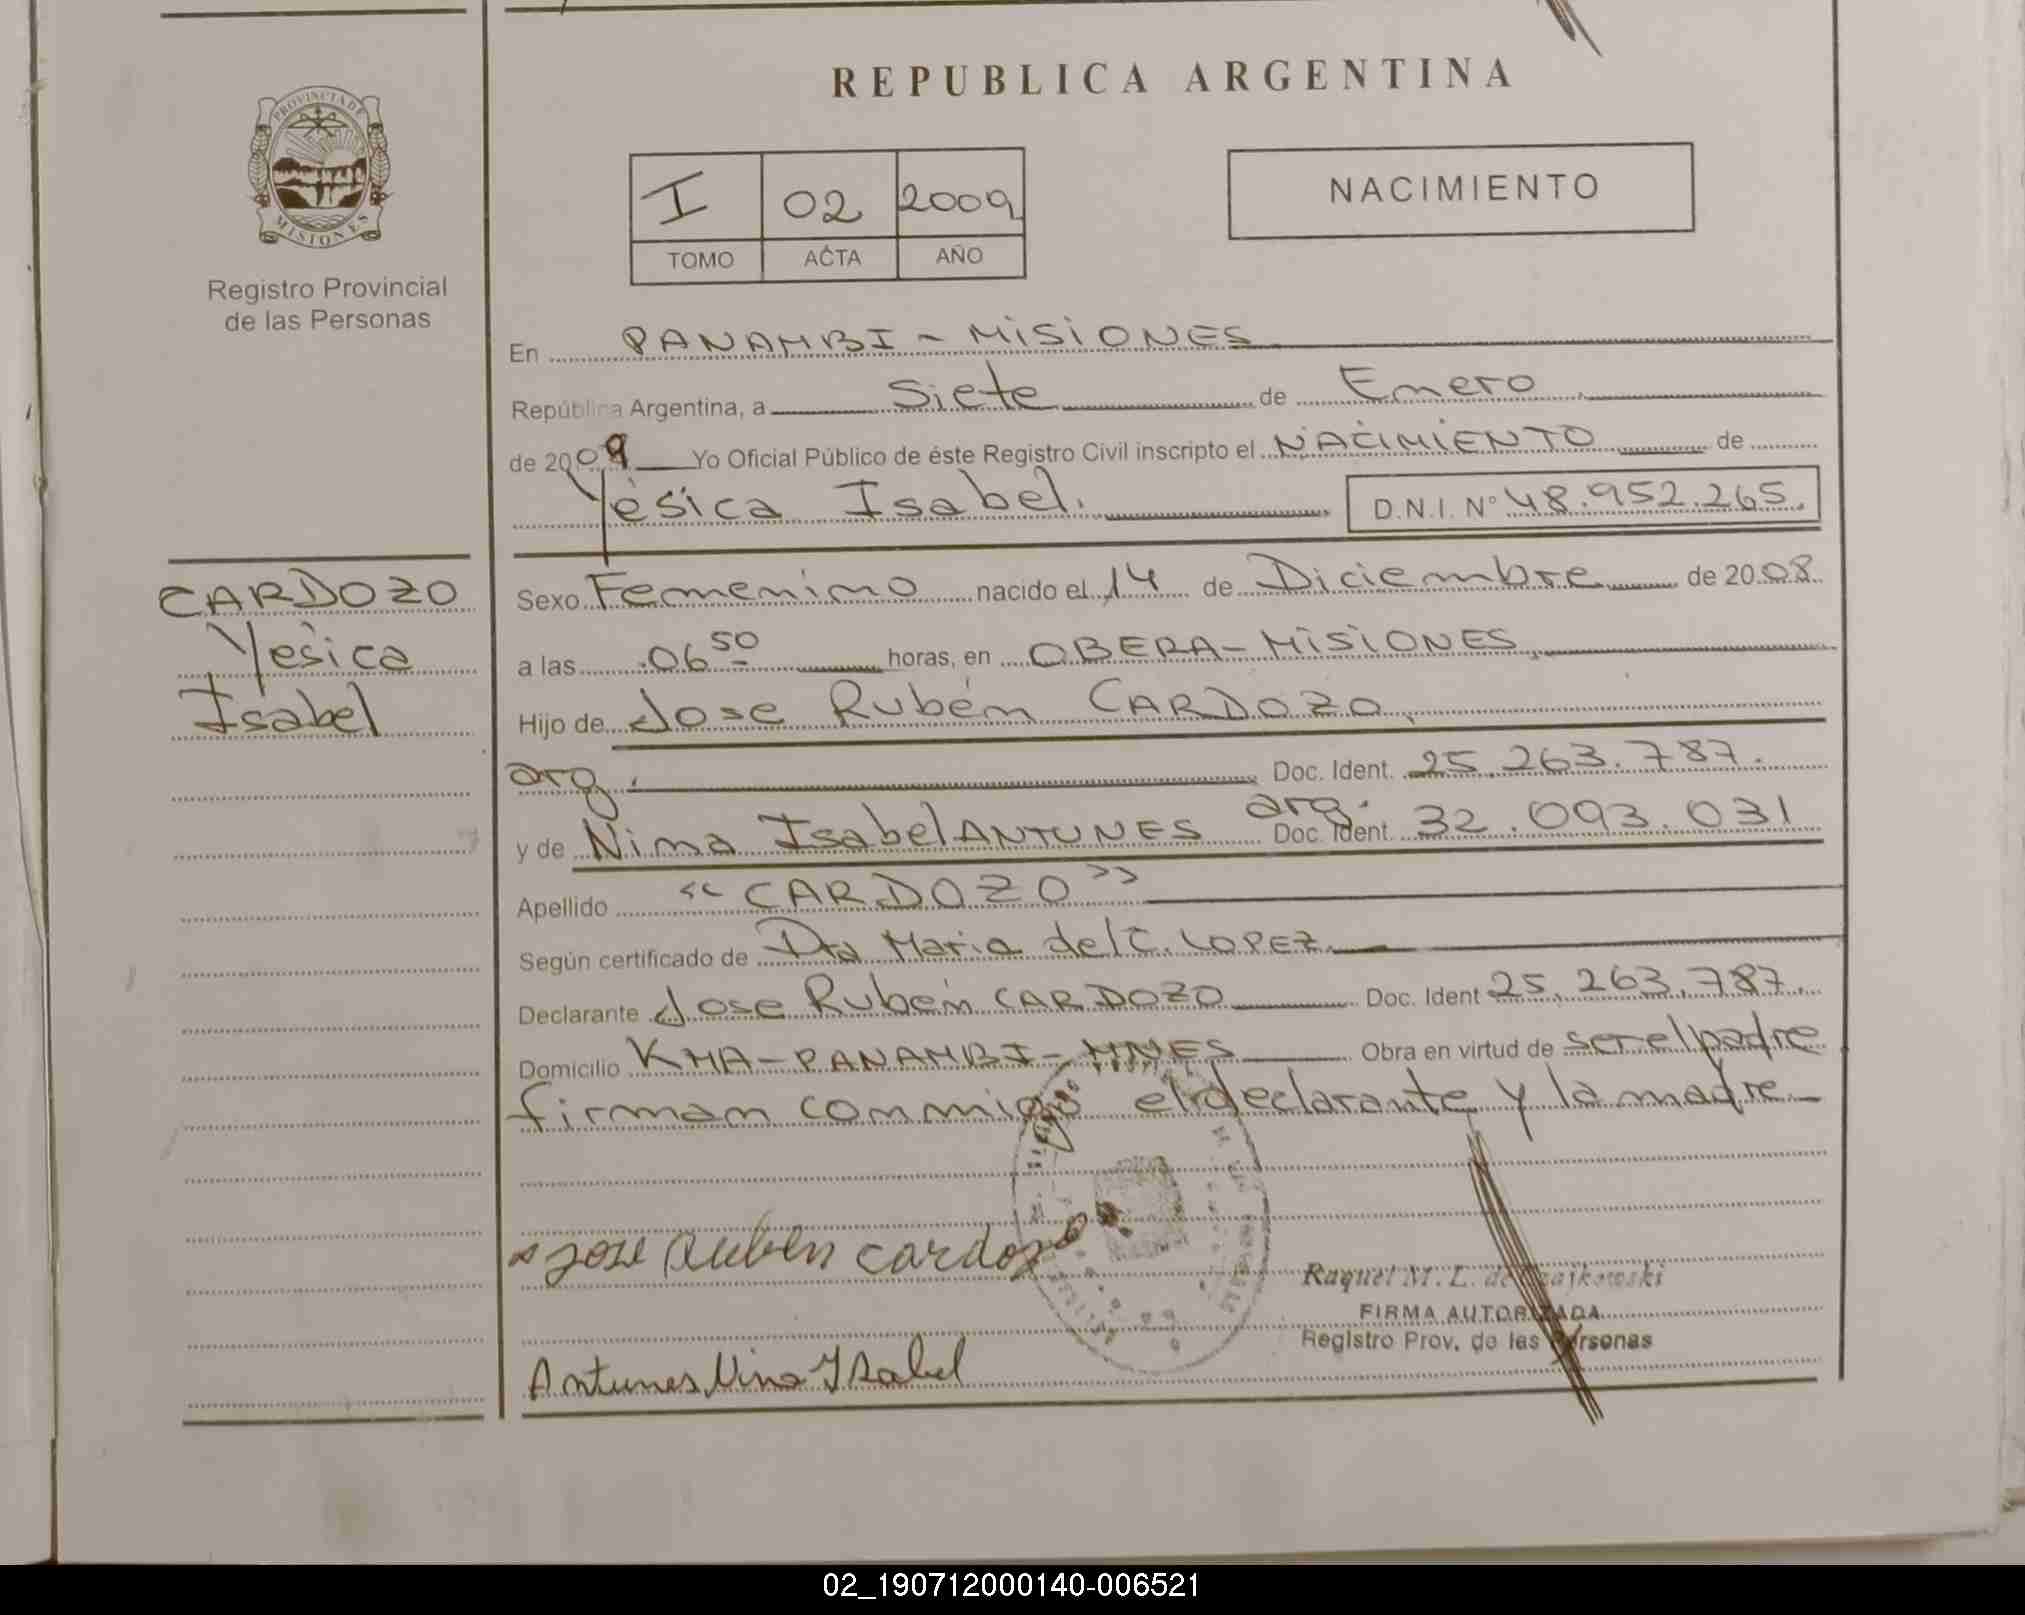 REPUBLICA ARGENTINA
PROVINCIA DE
MISIONES
Registro Provincial
de las Personas
I 02 2009
TOMO ACTA AÑO
NACIMIENTO
En PANAMBI - MISIONES
República Argentina, a Siete de Enero
de 2009 Yo Oficial Público de éste Registro Civil inscripto el NACIMIENTO de
Yésica Isabel. D.N.I. Nº 48.952.265.
CARDOZO
Yésica
Isabel
Sexo Femenino nacido el 14 de Diciembre de 2008
a las 06 50 horas, en OBERA - MISIONES,
Hijo de Jose Rubén CARDOZO,
arg. Doc. Ident. 25.263.787.
y de Nina Isabel ANTUNES arg. Doc. Ident. 32.093.031
Apellido "CARDOZO"
Según certificado de Dra Maria del C. LOPEZ
Declarante Jose Rubén CARDOZO Doc. Ident 25.263.787.
Domicilio KMA - PANAMBI - MNES Obra en virtud de ser el padre
firman conmigo el declarante y la madre
Jose Ruben Cardozo
Raquel M. L. de
FIRMA AUTORIZADA
Registro Prov. de las Personas
Antunes Nina Isabel
02_190712000140-006521